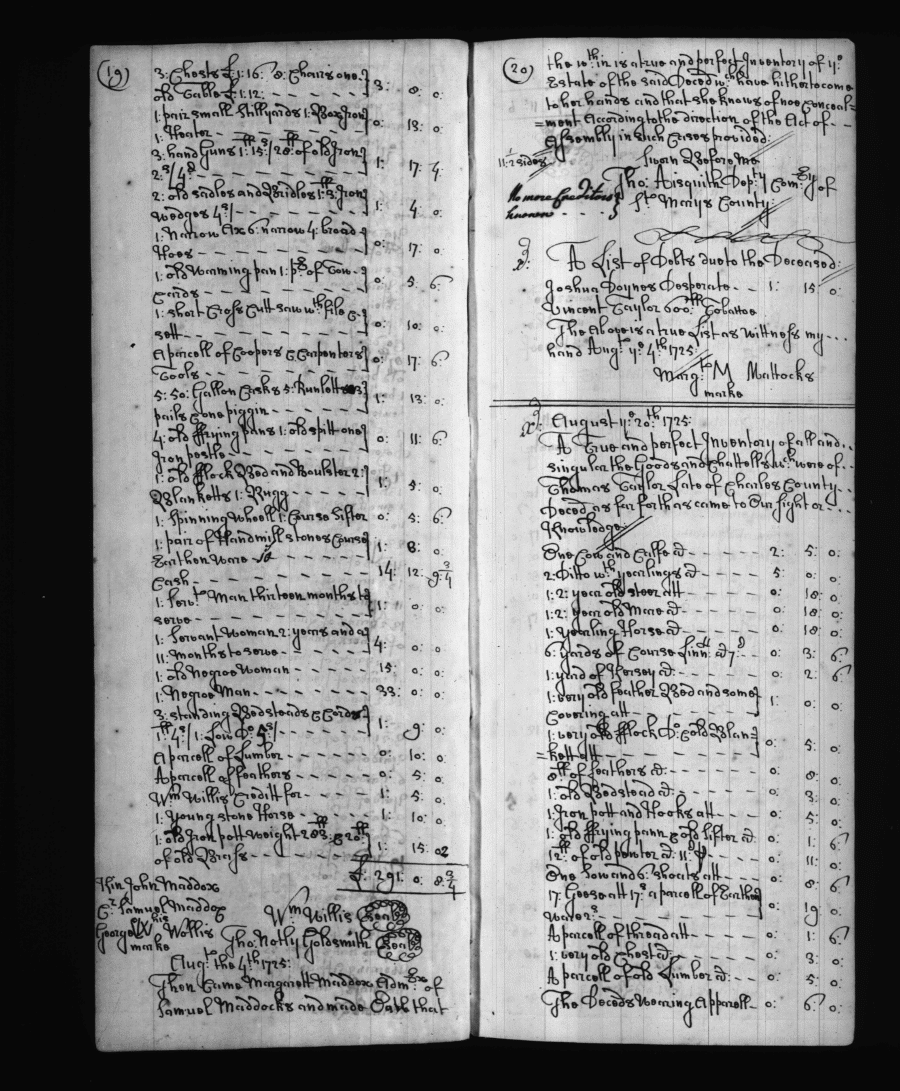 (19)
3: Chests £1:16: 8: Chairs one
old Table £1:12: - - - 3: 8: 0:
1: pair small Stillyards 1: Box Iron
1: Heater - - - 0: 13: 0:
3: hand Guns 1:15:/ 28: of old Iron
2:s/4:d - - - 1: 17: 4:
2: old sadles and Bridles 1: 3: Iron
Wedges 4:s/ - - - 1: 4: 0:
1: Narrow Ax 6: narrow 4: broad
Hoes - - - 0: 17: 0:
1: old Warming pan 1: pr. of Tow
Cards - - - 0: 5: 6:
1: short Cross Cutt saw wth. file &
sett - - - 0: 10: 0:
A parcell of Coopers & Carpenters
Tools - - - 0: 17: 6:
5: 50: Gallon Casks 5: Runletts 3
pails & one piggin - - - 1: 13: 0:
4: old ffrying pans 1: old spitt one
Iron pestle - - - 0: 11: 6:
1: old fflock Bed and Boulster 2:
Blanketts 1: Rugg - - - 1: 5: 0:
1: Spinning Wheell 1: Course Sifter 0: 5: 6:
1: pair of Handmill stones Course
Earthen Ware - - - 1: 8: 0:
Cash - - - 14: 12: 9:3/4
1: Servt. Man thirteen months to
serve - - - 1: 0: 0:
1: Servant Woman 2: years and a
11: months to serve - - - 4: 0: 0:
1: old Negroe Woman - - - 15: 0: 0:
1: Negroe Man - - - 33: 0: 0:
3: standing Bedsteads & Cords
1: 4:s/ 1: Low Do. 5:s/ - - - 1: 9: 0:
A parcell of Lumber - - - 0: 10: 0:
A parcell of feathers - - - 0: 5: 0:
Wm. Willis Creditt for - - - 1: 5: 0:
1: Young stone Horse - - - 1: 10: 0:
1: old Iron pott weight 28 & 20
of old Brass - - - 1: 15: 02
£: 291: 0: 8:3/4
Kin John Maddox
Cr. Samuel Maddox Wm. Willis (Seal)
George W his Wollis
marke Tho: Notly Goldsmith (Seal)
Augt. the 4th. 1725:
Then Came Margarett Maddox Admx. of
Samuel Maddocks and made Oath that
(20)
the within is a true and perfect Inventory of ye:
Estate of the said Deced wch. have hitherto come
to her hands and that she knows of noe conceal=
=ment According to the direction of the Act of - -
Assembly in such Cases provided:
11:2 sides
Sworn Before me
Tho: Aisquith Depty. Comry. of
St. Marys County:
No more Creditors
known - - -
A List of Debts due to the Deceased:
Joshua Doynes Desperate - - 1: 15: 0:
Vincent Taylor 600: Tobaccoe
The Above is a true List as Wittness my - - -
hand Augt. ye: 4th. 1725:
Margt. M Mattocks
marke
August ye: 20:th 1725:
A True and perfect Inventory of all and - -
singular the Goods and Chattells wch. were of - -
Thomas Taylor Late of Charles County - -
Deced as far forth as came to Our sight or - - -
Knowledge:
One Cow and Calfe at - - - 2: 5: 0:
2: Ditto wth. yearlings at - - - 5: 0: 0:
1: 2: year old steer att - - - 0: 18: 0:
1: 2: year old Mare at - - - 0: 18: 0:
1: yearling Horse at - - - 0: 18: 0:
6: yards of Course Linn: at 7:d - - 0: 3: 6:
1: yard of Kersey at: - - - 0: 2: 6:
1: very old feather Bed and some
Covering att - - - 1: 0: 0:
1: very old fflock Do: & old Blan=
=kett att - - - 0: 5: 0:
8: of feathers at: - - - 0: 8: 0:
1: old Bedstead at: - - - 0: 3: 0:
1: Iron pott and Hooks att - - - 0: 5: 0:
1: old ffrying pann & old Sifter at: 0: 1: 6:
12: of old pewter at 11:d p - - - 0: 11: 0:
One Sow and 6: shoats att - - - 0: 8: 6:
17: Geese att 17:s a parcell of Earthen
Ware 2:s - - - 0: 19: 0:
A parcell of thread att - - - 0: 1: 6:
1: very old Chest at: - - - 0: 3: 0:
A parcell of old Lumber at: - - - 0: 5: 0:
The Deceds Wearing Apparell - - 0: 6: 0: